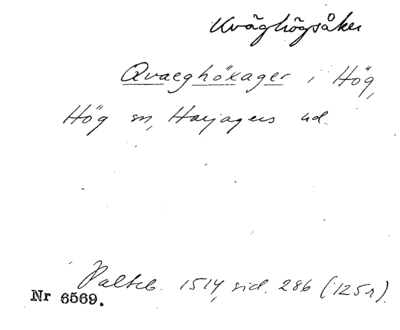 Kväghögsåker
Qvaeghöxager i Hög,
Hög sn, Harjagers hd.
Palteb. 1514, sid. 286 (125r).
Nr 6569.